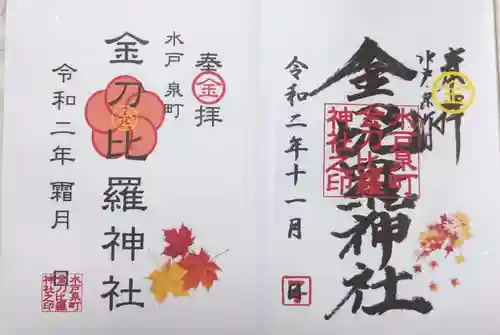 奉拝
水戸 泉町
金刀比羅神社
水戸泉町
金刀比羅
神社之印
令和二年十一月
日
奉拝
金
水戸 泉町
金刀比羅神社
金
令和二年 霜月
日
水戸泉町
金刀比羅
神社之印